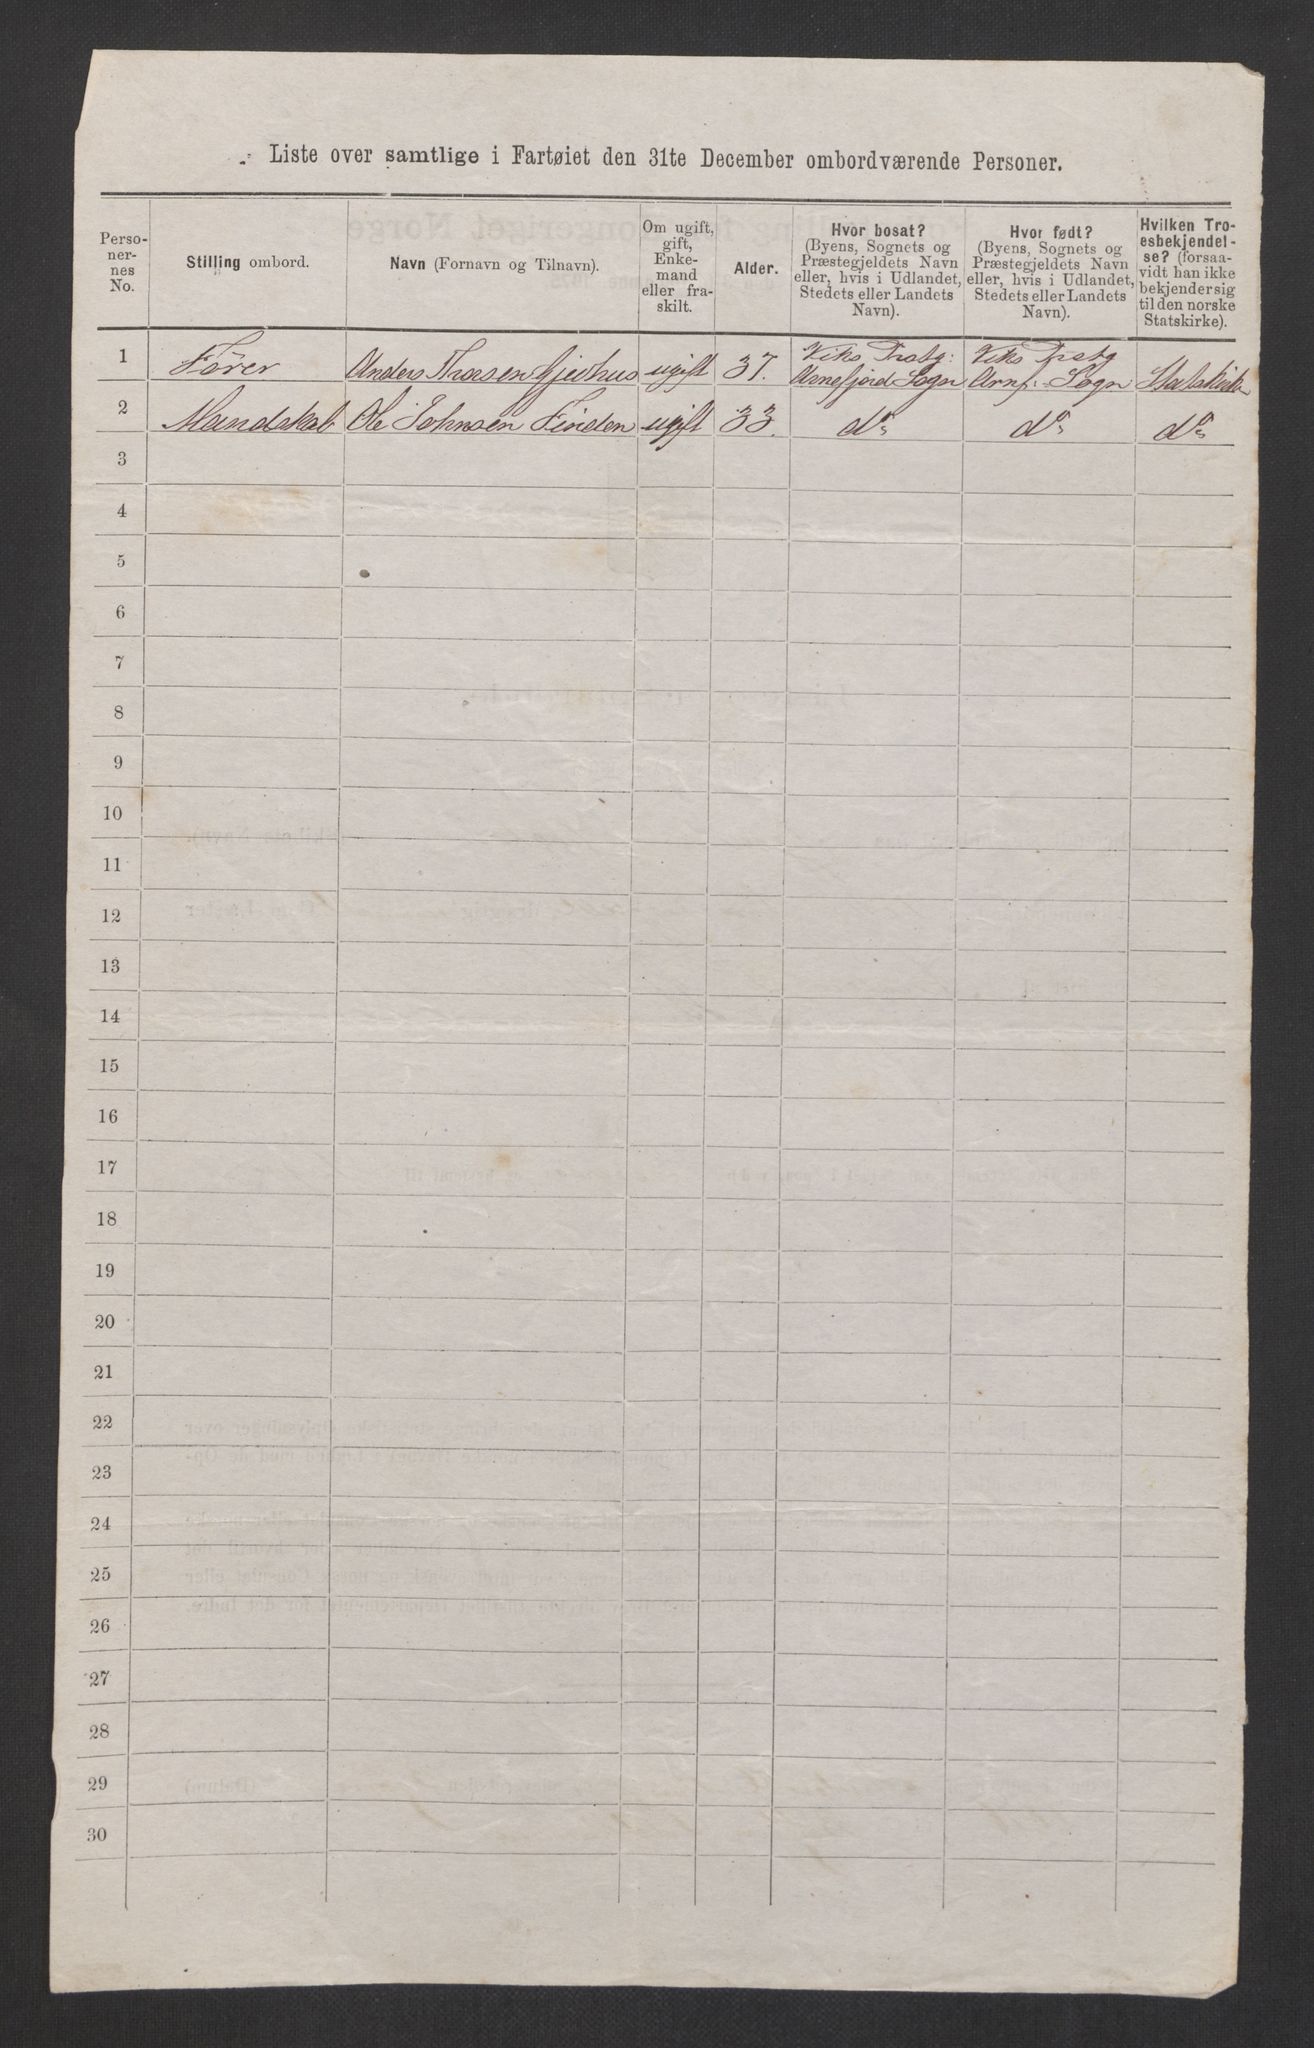 Liste over samtlige i Fartøiet den 31te December ombordværende Personer.
Perso-
ner-
nes
No.
Stilling ombord.
Navn (Fornavn og Tilnavn).
Om ugift,
gift,
Enke-
mand
eller fra-
skilt.
Alder.
Hvor bosat?
(Byens, Sognets og
Præstegjeldets Navn
eller, hvis i Udlandet,
Stedets eller Landets
Navn).
Hvor født?
(Byens, Sognets og
Præstegjeldets Navn
eller, hvis i Udlandet,
Stedets eller Landets
Navn).
Hvilken Tro-
esbekjendel-
se? (forsaa-
vidt han ikke
bekjender sig
til den norske
Statskirke).
1 Förer Anders Thorsen Gjeithus ugift 37. Viks Prstg: Arnefjord Sogn Viks Prstg Arnf. Sogn Statskirke
2 Mandskab Ole Johnsen Finden ugift 33. do do do
3
4
5
6
7
8
9
10
11
12
13
14
15
16
17
18
19
20
21
22
23
24
25
26
27
28
29
30